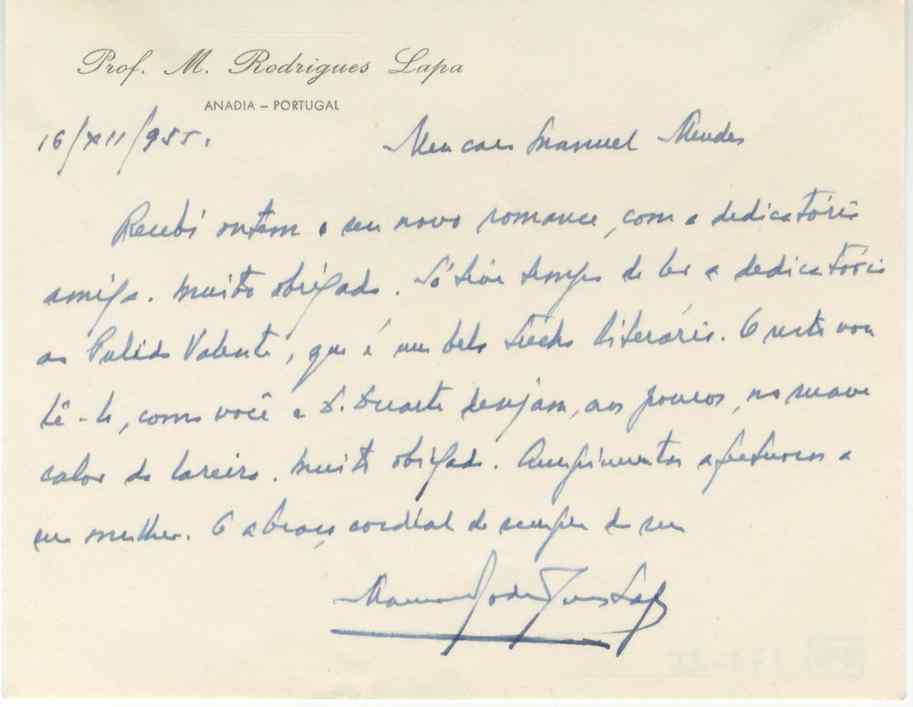 Prof. M. Rodrigues Lapa
ANADIA – PORTUGAL
16/XII/955.
Meu caro Manuel Mendes
Recebi ontem o seu novo romance, com a dedicatória
amiga. Muito obrigado. Só tive tempo de ler a dedicatória
ao Pulido Valente, que é um belo trecho literário. O resto vou
lê-lo, como você e D. Duarte desejam, aos poucos, no suave
calor da lareira. Muito obrigado. Cumprimentos afectuosos a
sua mulher. O abraço cordial de sempre do seu
Manuel Rodrigues Lapa